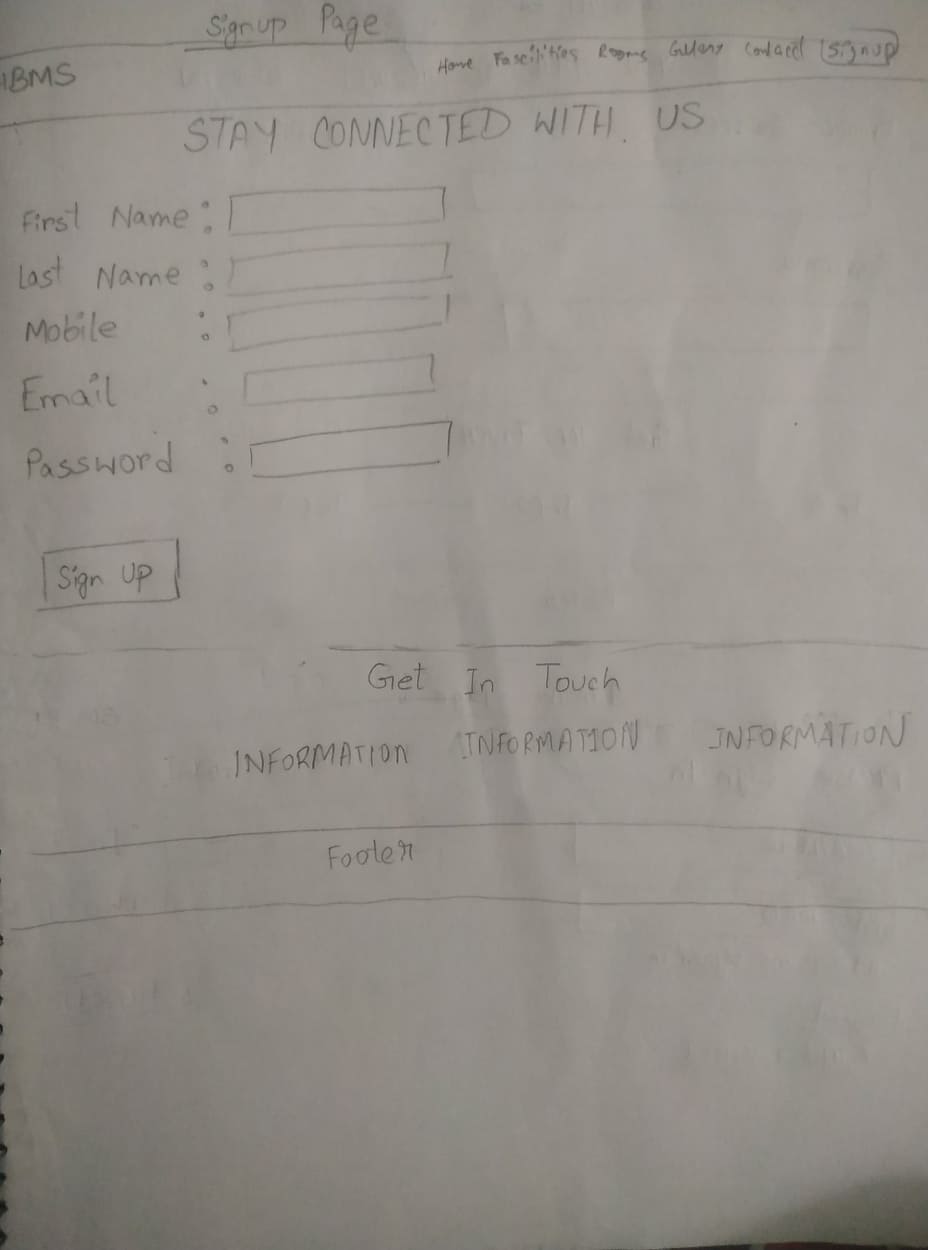 Signup Page
HBMS Home Fascilities Rooms Gallery Contact Signup
STAY CONNECTED WITH US
First Name :
Last Name :
Mobile :
Email :
Password :
Sign UP
Get In Touch
INFORMATION INFORMATION INFORMATION
Footer